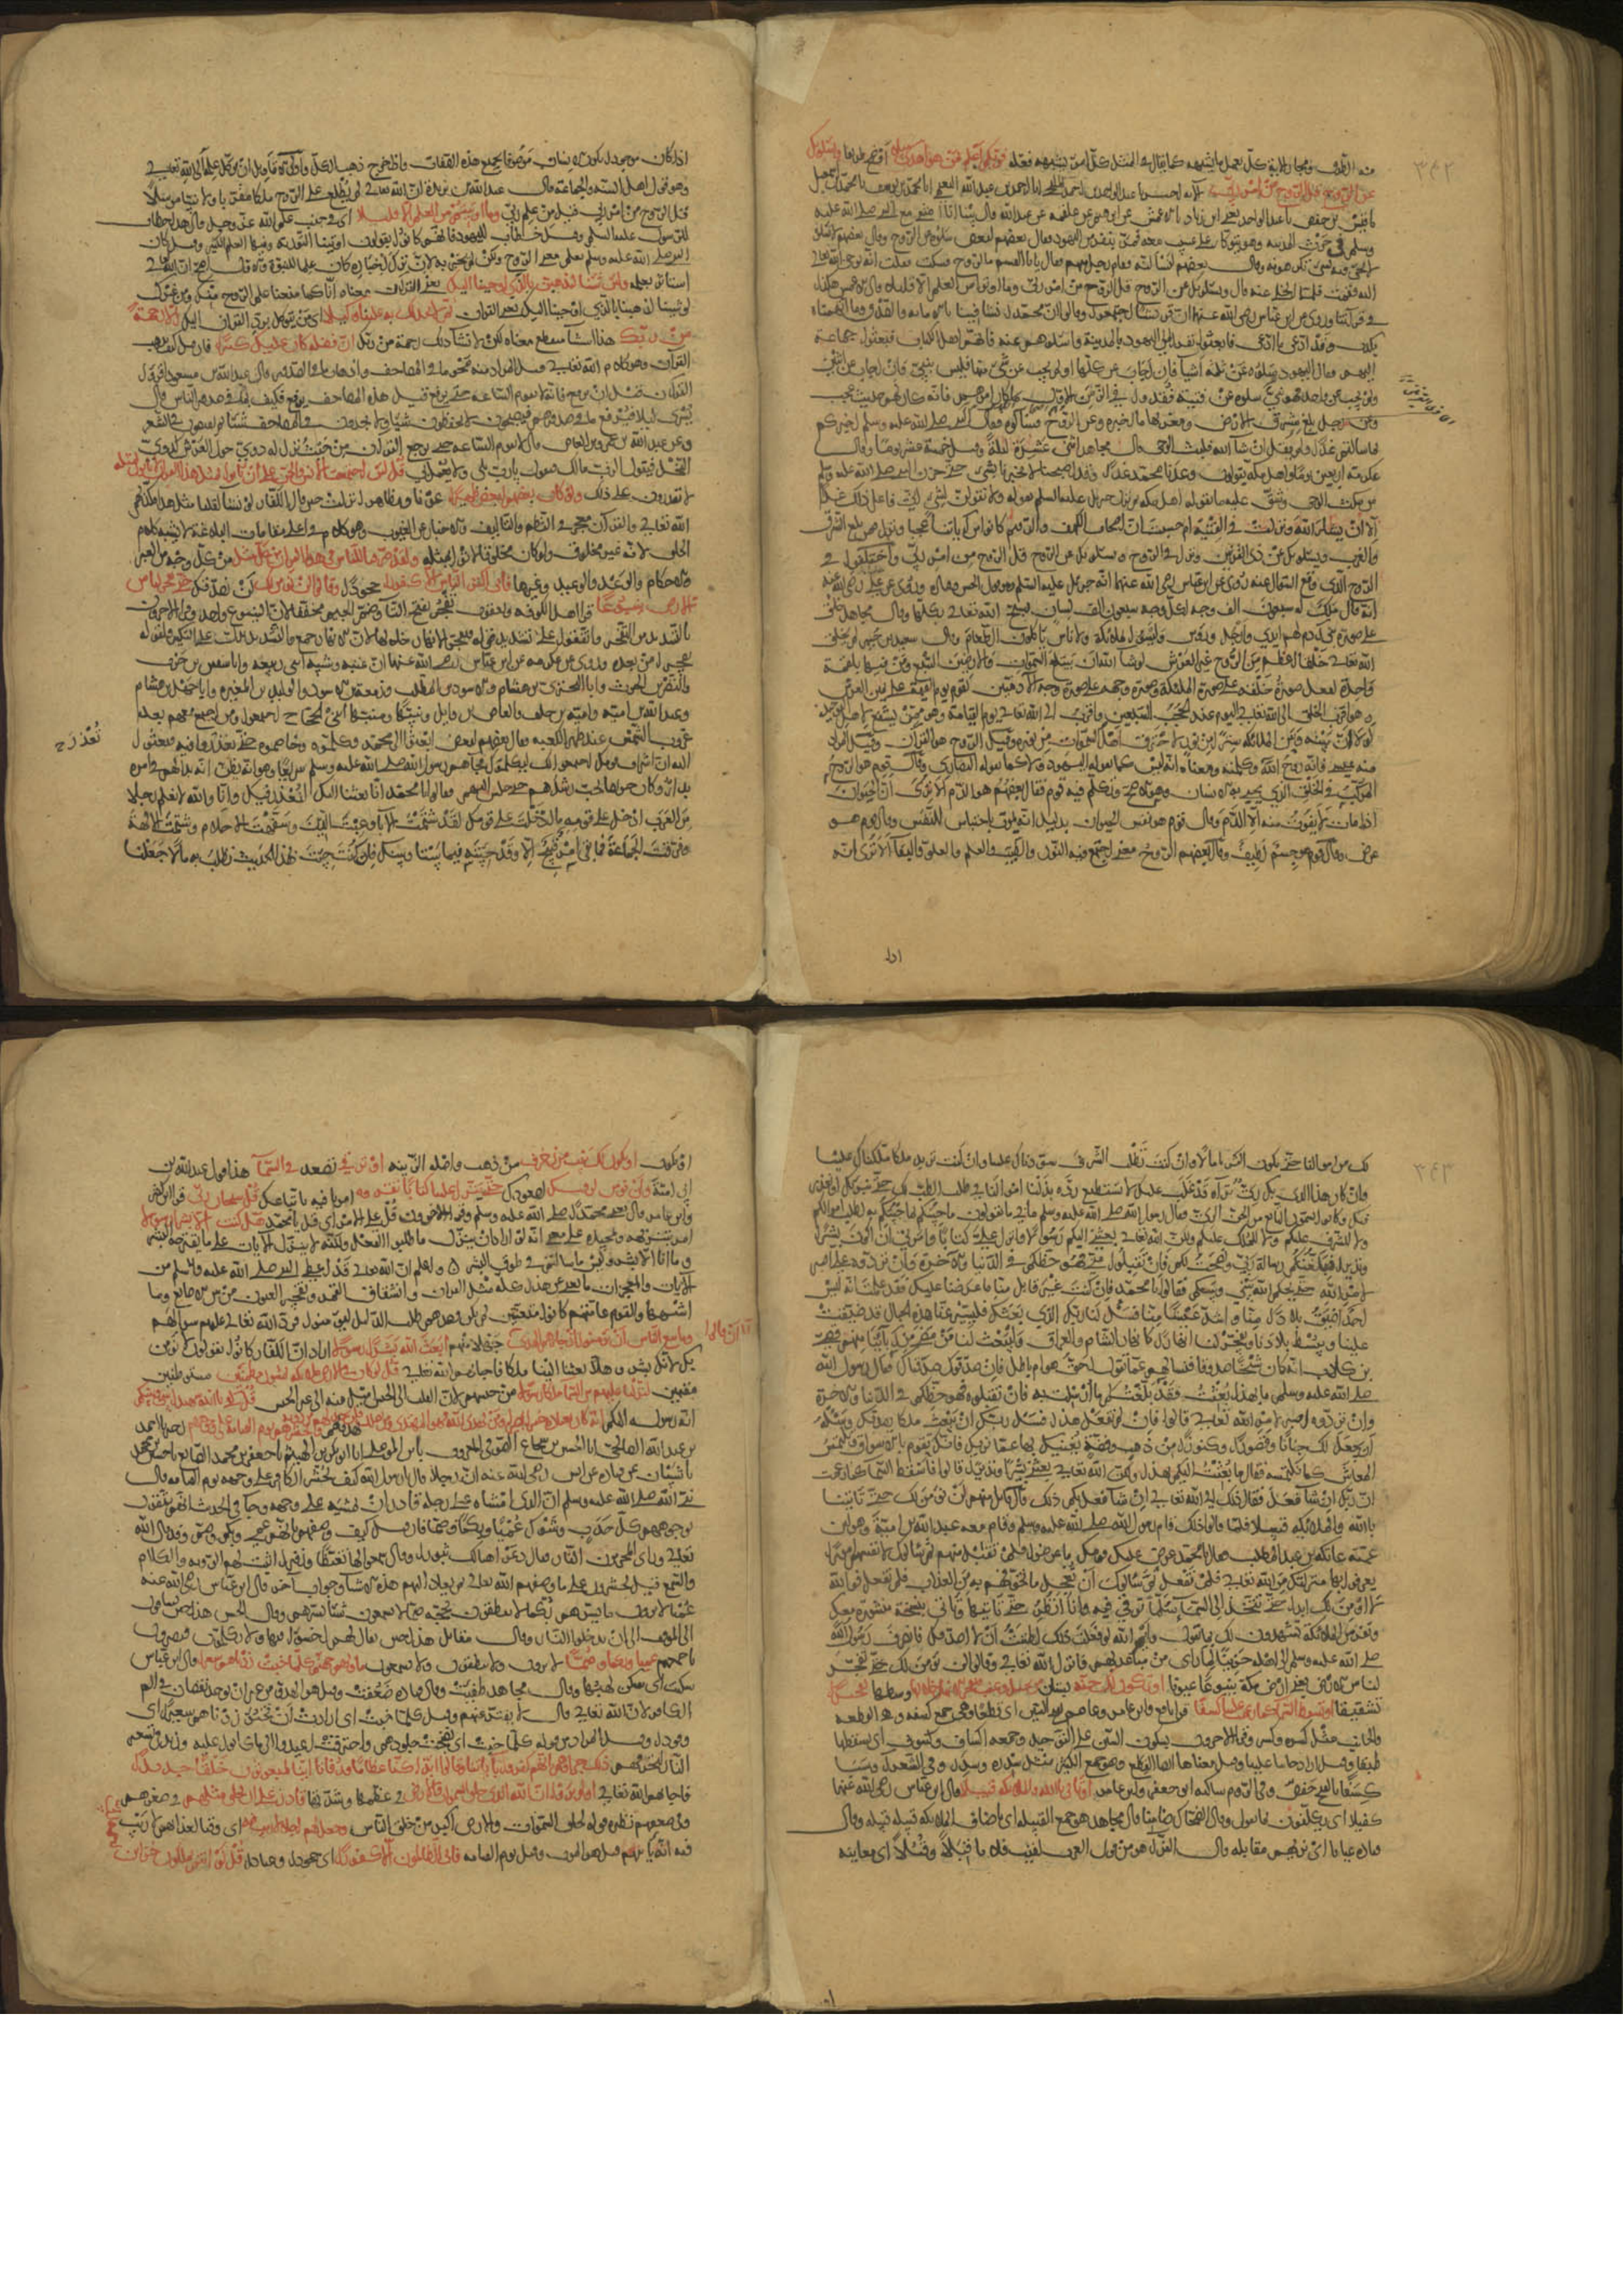 ٣٤٢
فربكم اعلم بمن هو اهدى سبيلا اوضح طريقا ويسئلونك
عن الروح قل الروح من امر ربي الآية اخبرنا عبد الواحد بن احمد المليحي انا احمد بن عبد الله النعيمي انا محمد بن يوسف نا محمد بن اسمعيل
نا قيس بن حفص نا عبد الواحد يعني ابن زياد نا الاعمش عن ابرهيم عن علقمه عن عبد الله قال بينا انا امشي مع النبي صلى الله عليه
وسلم في خرب المدينه وهو يتوكأ على عسيب معه فمر بنفر من اليهود فقال بعضهم لبعض سلوه عن الروح وقال بعضهم لا تسئلوه
لا يجئ فيه بشئ تكرهونه وقال بعضهم لنسألنه فقام رجل منهم فقال يا ابا القسم ما الروح فسكت فقلت انه يوحى اليه
فقمت فلما انجلى عنه قال ويسئلونك عن الروح قل الروح من امر ربي وما اوتيتم من العلم الا قليلا قال الاعمش هكذا
في قرآتنا وروي عن ابن عباس رضي الله عنهما ان قريشا اجتمعوا وقالوا ان محمدا نشأ فينا بالامانه والصدق وما اتهمناه
بكذب وقد ادعى ما ادعى فابعثوا نفرا الى اليهود بالمدينة واسئلوهم عنه فانهم اهل كتاب فبعثوا جماعة
اليهم فقال اليهود سلوه عن ثلثة اشيآ فان اجاب عن كلها او لم يجب عن شئ منها فليس بنبي وان اجاب عن اثنين
ولم يجب عن واحدة فهو نبي سلوه عن فتية فقدوا في الزمن الاول ما كان امرهم فانه كان لهم حديث عجيب
وعن رجل بلغ شرق الارض وغربها ما خبره وعن الروح فسألوه فقال النبي صلى الله عليه وسلم اخبركم
بما سالتم غدا ولم يقل ان شآ الله فلبث الوحي قال مجاهد اثنى عشرة ليلة وقيل خمسة عشر يوما وقال
عكرمه اربعين يوما واهل مكه يقولون وعدنا محمد غدا وقد اصبحنا لا يخبرنا بشئ حتى حزن النبي صلى الله عليه وسلم
من مكث الوحي وشق عليه ما يقوله اهل مكه ثم نزل جبريل عليه السلم بقوله ولا تقولن لشئ اني فاعل ذلك غدا
الا ان يشآ الله ونزل في الفتية ام حسبت ان اصحاب الكهف والرقيم كانوا من آياتنا عجبا ونزل فيمن بلغ الشرق
والغرب ويسئلونك عن ذي القرنين ونزل في الروح ويسئلونك عن الروح قل الروح من امر ربي واختلفوا في
الروح الذي وقع السؤال عنه فروي عن ابن عباس رضي الله عنهما انه جبريل عليه السلم وهو قول الحسن وقتاده وروي عن علي رضي الله عنه
انه قال ملك له سبعون الف وجه لكل وجه سبعون الف لسان يسبح الله تعالى بكلها وقال مجاهد خلق
على صورة بني آدم لهم ايدي وارجل ورؤس وليسوا بملائكة ولا ناس يأكلون الطعام وقال سعيد بن جبير لم يخلق
الله تعالى خلقا اعظم من الروح غير العرش لو شآ ان يبتلع السموات والارضين السبع ومن فيها بلقمة
واحدة لفعل صورة خلقه على صورة الملئكة وصورة وجهه على صورة وجه الآدميين يقوم يوم القيمة على يمين العرش
وهو اقرب الخلق الى الله تعالى اليوم عند الحجب السبعين واقرب الى الله تعالى يوم القيامة وهو ممن يشفع لاهل التوحيد
لولا ان بينه وبين الملائكه سترا من نور لاحترق اهل السموات من نوره وقيل الروح هو القرآن وقيل المراد
منه عيسى فانه روح الله وكلمته ومعناه انه ليس كما يقوله اليهود ولا كما يقوله النصارى وقال قوم هو الروح
المركب في الخلق الذي يحيى به الانسان وهو الاصح وتكلم فيه قوم فقال بعضهم هو الدم الا ترى ان الحيوان
اذا مات لا يفوت منه الا الدم وقال قوم هو نفس الحيوان بدليل انه يموت باحتباس النفس وقال قوم هو
عرض وقال قوم هو جسم لطيف وقال بعضهم الروح معنى اجتمع فيه النور والطيب والعلم والعلو والبقآ الا ترى انه
اذا
اذا كان موجودا يكون الانسان موصوفا بجميع هذه الصفات واذا خرج ذهب الكل واولى الاقاويل ان يوكل علمه الى الله تعالى
وهو قول اهل السنه والجماعة قال عبد الله بن بريدة ان الله تعالى لم يطلع على الروح ملكا مقربا ولا نبيا مرسلا
قل الروح من امر ربي قيل من علم ربي وما اوتيتم من العلم الا قليلا اي في جنب علم الله عز وجل وقيل هذا خطاب
للرسول عليه السلم وقيل خطاب لليهود فانهم كانوا يقولون اوتينا التورية وفيها العلم الكثير وقيل كان
النبي صلى الله عليه وسلم يعلم معنى الروح ولكن لم يخبر به لان ترك اخباره كان علما لنبوته والاول اصح ان الله تعالى
استأثر بعلمه ولئن شئنا لنذهبن بالذي اوحينا اليك يعني القرآن معناه انا كما منعنا علم الروح عنك وعن غيرك
لو شئنا لذهبنا بالذي اوحينا اليك يعني القرآن ثم لا تجد لك به علينا وكيلا اي من يتوكل برد القرآن اليك الا رحمة
من ربك هذا استثنآ منقطع معناه لكن لا نشآ ذلك رحمة من ربك ان فضله كان عليك كبيرا فان قيل كيف يذهب
القرآن وهو كلام الله تعالى قيل المراد منه محو ما في المصاحف واذهاب ما في الصدور قال عبد الله بن مسعود اقرؤا
القرآن قبل ان يرفع فانه لا تقوم الساعه حتى يرفع قيل هذه المصاحف يرفع فكيف بما في صدور الناس قال
يسرى ليلا فيرفع ما في صدورهم فيصبحون لا يحفظون شيئا ولا يجدون في المصاحف شيئا ثم يفيضون في الشعر
وعن عبد الله بن عمرو بن العاص قال لا تقوم الساعه حتى يرجع القرآن من حيث نزل له دوي حول العرش كدوي
النحل فيقول الرب مالك فيقول يا رب اتلى ولا يعمل بي قل لئن اجتمعت الانس والجن على ان ياتوا بمثل هذا القرآن لا ياتون بمثله
لا يقدرون على ذلك ولو كان بعضهم لبعض ظهيرا عونا ومظاهرا نزلت حين قال الكفار لو نشآ لقلنا مثل هذا فكذبهم
الله تعالى فالقرآن معجز في النظم والتاليف والاخبار عن الغيوب وهو كلام في اعلى مقامات البلاغة لا يشبه كلام
الخلق لانه غير مخلوق ولو كان مخلوقا لاتوا بمثله ولقد صرفنا للناس في هذا القرآن من كل مثل من كل وجه من العبر
والاحكام والوعد والوعيد وغيرها فابى اكثر الناس الا كفورا جحودا وقالوا لن نؤمن لك لن نصدقك حتى تفجر لنا من
الارض ينبوعا قرأ اهل الكوفه ويعقوب تفجر بفتح التآ وضم الجيم مخففا لان الينبوع واحد وقرأ الآخرون
بالتشديد من التفجير واتفقوا على تشديد قوله فتفجر الانهار خلالها لان الانهار جمع والتشديد يدل على التكثير لقوله
من بعده وروى عن عكرمه عن ابن عباس رضي الله عنهما ان عتبه وشيبه ابني ربيعه وابا سفين بن حرب
والنضر بن الحرث وابا البختري بن هشام والاسود بن المطلب وزمعة بن الاسود والوليد بن المغيره وابا جهل بن هشام
وعبد الله بن ابي اميه واميه بن خلف والعاص بن وائل ونبيها ومنبها ابني الحجاج اجتمعوا ومن اجتمع معهم بعد
غروب الشمس عند ظهر الكعبه فقال بعضهم لبعض ابعثوا الى محمد وكلموه وخاصموه حتى تعذروا فيه فبعثوا
اليه ان اشراف قومك اجتمعوا لك ليكلموك فجآهم رسول الله صلى الله عليه وسلم سريعا وهو انه يظن انه بدا لهم في امره
بدآ وكان حريصا يحب رشدهم حتى جلس اليهم فقالوا يا محمد انا بعثنا اليك لنعذر فيك وانا والله لا نعلم رجلا
من العرب ادخل على قومه ما ادخلت على قومك لقد شتمت الآبآ وعبت الدين وسفهت الاحلام وشتمت الآلهة
وفرقت الجماعة فما بقي امر قبيح الا وقد جئته فيما بيننا وبينك فان كنت جئت بهذا الحديث تطلب به مالا جعلنا
٣٤٣
لك من اموالنا حتى تكون اكثرنا مالا وان كنت تطلب الشرف سودناك علينا وان كنت تريد ملكا ملكناك علينا
وان كان هذا الذي بك رئي تراه قد غلب عليك لا تستطيع رده بذلنا اموالنا في طلب الطب لك حتى نبرئك او نعذر
فيك وكانوا يسمون التابع من الجن الرئي فقال رسول الله صلى الله عليه وسلم ما بي ما تقولون ما جئتكم بما جئتكم به لطلب اموالكم
ولا للشرف عليكم ولا للملك عليكم ولكن الله تعالى بعثني اليكم رسولا وانزل علي كتابا وامرني ان اكون بشيرا
ونذيرا فبلغتكم رسالة ربي ونصحت لكم فان تقبلوا مني فهو حظكم في الدنيا والآخرة وان تردوه علي اصبر
لامر الله حتى يحكم الله بيني وبينكم فقالوا يا محمد فان كنت غير قابل منا ما عرضنا عليك فقد علمت انه ليس
احد اضيق بلادا منا ولا اشد عيشا منا فسل لنا ربك الذي بعثك فليسير عنا هذه الجبال قد ضيقت
علينا ويبسط بلادنا ويفجر لنا انهارا كانهار الشام والعراق وليبعث لنا من مضى من آبائنا وليكن منهم قصي
بن كلاب انه كان شيخا صدوقا فنسألهم عما تقول احق هو ام باطل فان صدقوك صدقناك فقال رسول الله
صلى الله عليه وسلم ما بهذا بعثت فقد بلغتكم ما ارسلت به فان تقبلوه فهو حظكم في الدنيا والآخرة
وان تردوه اصبر لامر الله تعالى قالوا فان لم تفعل هذا فسل ربك ان يبعث ملكا يصدقك وسله
ان يجعل لك جنانا وقصورا وكنوزا من ذهب وفضة يغنيك بها عما نريك فانك تقوم بالاسواق وتلتمس
المعاش كما نلتمسه فقال ما بعثت اليكم بهذا ولكن الله تعالى بعثني بشيرا ونذيرا قالوا فاسقط السمآ كما زعمت
ان ربك ان شآ فعل فقال ذلك الى الله تعالى ان شآ فعل بكم ذلك وقال قائل منهم لن نؤمن لك حتى تاتينا
بالله والملائكه قبيلا فلما قالوا ذلك قام رسول الله صلى الله عليه وسلم وقام معه عبد الله بن ابي امية وهو ابن
عمته عاتكه بنت عبد المطلب فقال يا محمد عرض عليك قومك ما عرضوا فلم تقبله منهم ثم سألوك لانفسهم امورا
يعرفوا بها منزلتك من الله تعالى فلم تفعل ثم سألوك ان تعجل ما تخوفهم به من العذاب فلم تفعل فوالله
لا اومن لك ابدا حتى تتخذ الى السمآ سلما ترقى فيه وانا انظر حتى تاتيها وتاتي بنسخة منشورة معك
ونفر من الملائكة يشهدون لك بما تقول وايم الله لو فعلت ذلك لظننت ان لا اصدقك فانصرف رسول الله
صلى الله عليه وسلم الى اهله حزينا لما راى من مباعدتهم فانزل الله تعالى وقالوا لن نؤمن لك حتى تفجر
لنا من الارض يعني ارض مكة ينبوعا عيونا او تكون لك جنة بستان من نخيل وعنب فتفجر الانهار خلالها وسطها تفجيرا
تشقيقا او تسقط السمآ كما زعمت علينا كسفا قرأ نافع وابن عامر وعاصم بفتح السين اي قطعا وهي جمع كسفه وهي القطعه
والجانب مثل كسره وكسر وقرأ الآخرون بسكون السين على التوحيد وجمعه اكساف وكسوف اي تسقطها
طبقا وقيل اراد جانبا علينا وقيل معناهما ايضا القطع وهو جمع الكثير مثل سدره وسدر وفي الشعرآ وسبا
كسفا بالفتح حفص وفي الروم ساكنه ابو جعفر وابن عامر او تاتي بالله والملائكة قبيلا قال ابن عباس رضي الله عنهما
كفيلا اي يكفلون بما تقول وقال الضحاك ضامنا قال مجاهد هو جمع القبيله اي باصناف الملائكه قبيله قبيله وقال
قتاده عيانا اي نراهم مقابله وقال الفرآ هو من قول العرب لقيت فلانا قبلا وقبيلا اي معاينه
او يكون لك بيت من زخرف من ذهب واصله الزينه او ترقى تصعد في السمآ هذا قول عبد الله بن
ابي امية ولن نؤمن لرقيك لصعودك حتى تنزل علينا كتابا نقرؤه امرنا فيه باتباعك قل سبحان ربي قرأ ابن كثير
وابن عامر قال يعني محمدا صلى الله عليه وسلم وقرأ الآخرون قل على الامر اي قل يا محمد هل كنت الا بشرا رسولا
امره بتنزيهه وتمجيده على معنى انه لو اراد ان ينزل ما طلبوا لفعل ولكنه لا ينزل الآيات على ما يقترحه البشر
وما انا الا بشر وليس ما سالتم في طوق البشر واعلم ان الله تعالى قد اعطى النبي صلى الله عليه وسلم من
الآيات والمعجزات ما يغني عن هذا كله مثل القرآن وانشقاق القمر وتفجير العيون من بين الاصابع وما
اشبهها والقوم عامتهم كانوا متعنتين لم يكن قصدهم طلب الدليل ليؤمنوا فرد الله تعالى عليهم سؤالهم
وما منع الناس ان يؤمنوا اذ جآهم الهدى الا ان قالوا جهلا منهم ابعث الله بشرا رسولا اراد ان الكفار كانوا يقولون لن نؤمن
لك لانك بشر وهلا بعث الينا ملكا فاجابهم الله تعالى قل لو كان في الارض ملائكه يمشون مطمئنين مستوطنين
مقيمين لنزلنا عليهم من السمآ ملكا رسولا من جنسهم لان القلب الى الجنس اميل منه الى غير الجنس قل كفى بالله شهيدا بيني وبينكم
اخبرنا احمد
بن عبد الله الصالحي انا الحسين بن شجاع الصوفي المعروف بابن الموصلي انا ابو بكر بن الهيثم نا جعفر بن محمد الصائغ نا حسين بن محمد
نا شيبان عن قتاده عن انس رضي الله عنه ان رجلا قال يا رسول الله كيف يحشر الكافر على وجهه يوم القيامه قال
نبي الله صلى الله عليه وسلم ان الذي امشاه على رجليه قادر ان يمشيه على وجهه وجآ في الحديث انهم يتقون
بوجوههم كل حدب وشوك عميا وبكما وصما فان قيل كيف وصفهم بانهم عمي وبكم وصم وقد قال الله
تعالى وراى المجرمون النار وقال دعوا هنالك ثبورا وقال سمعوا لها تغيظا وزفيرا اثبت لهم الرويه والكلام
والسمع قيل يحشرون على ما وصفهم الله تعالى ثم يعاد اليهم هذه الاشيآ وجواب آخر قال ابن عباس رضي الله عنه
عميا لا يرون ما يسرهم بكما لا ينطقون بحجه صما لا يسمعون شيئا يسرهم وقال الحسن هذا حين يساقون
الى الموقف الى ان يدخلوا النار وقال مقاتل هذا حين يقال لهم اخسؤا فيها ولا تكلمون فيصيرون
باجمعهم عميا وبكما وصما لا يرون ولا ينطقون ولا يسمعون ماواهم جهنم كلما خبت زدناهم سعيرا قال ابن عباس
سكنت اي سكن لهيبها وقال مجاهد طفئت وقال قتاده ضعفت وقيل هو الهدو من غير ان يوجد نقصان في الم
الكافر لان الله تعالى قال لا يفتر عنهم وقيل كلما خبت اي ارادت ان تخبو زدناهم سعيرا اي
وقودا وقيل المراد من قوله كلما خبت اي نضجت جلودهم واحترقت اعيدوا الى ما كانوا عليه وزيد في تسعير
النار لتحرقهم ذلك جزاؤهم بانهم كفروا بآياتنا وقالوا ائذا كنا عظاما ورفاتا ائنا لمبعوثون خلقا جديدا
فاجابهم الله تعالى اولم يروا ان الله الذي خلق السموات والارض في عظمها وشدتها قادر على ان يخلق مثلهم في صغرهم
وضعفهم نظيره قوله لخلق السموات والارض اكبر من خلق الناس وجعل لهم اجلا لا ريب فيه اي وقتا لعذابهم لا ريب
فيه انه ياتيهم قيل هو الموت وقيل يوم القيامه فابى الظالمون الا كفورا اي جحودا وعنادا قل لو انتم تملكون خزائن